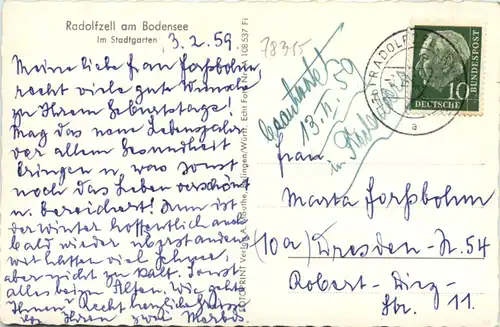 Radolfzell am Bodensee
Im Stadtgarten
3.2.59
Meine liebe Frau Forßbohm,
recht viele gute Wünsche
zu Ihrem Geburtstage!
Mag das neue Lebensjahr
vor allem Gesundheit
bringen u. was sonst
noch das Leben verschönt
u. bereichert! Nun ist
der Winter hoffentlich auch
bald wieder überstanden
wir hatten viel Schnee,
aber nicht zu kalt. Sonst
alles beim Alten. Wie geht's
Ihnen? Recht herzliche Grüße
Ihnen zwei
Echt Foto Nr. 108537 Fi
78315
Beantwortet
13.11.59
in
RADOLF
a
DEUTSCHE
BUNDESPOST
10
Frau
Marta Forßbohm
(10a) Dresden-N. 54
Robert-Diez-
Str. 11